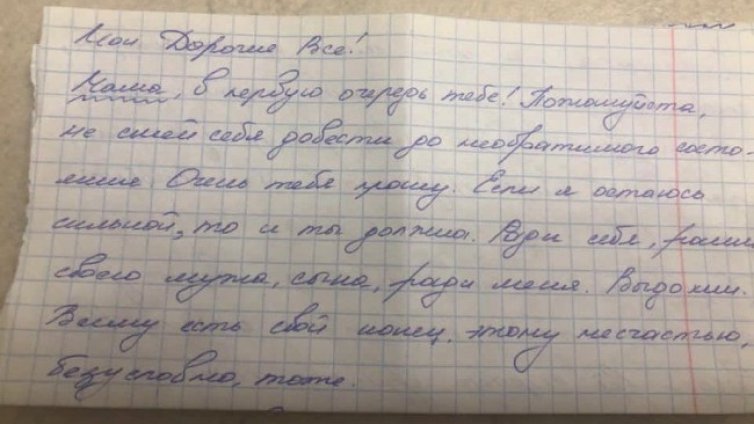 Мои Дорогие Все!
Мама, в первую очередь тебе! Пожалуйста,
не смей себя довести до необратимого состо-
яния Очень тебя прошу. Если я остаюсь
сильной, то и ты должна. Ради себя, ради
своего мужа, сына, ради меня. Выдохни.
Всему есть свой конец, этому несчастью,
безусловно, тоже.